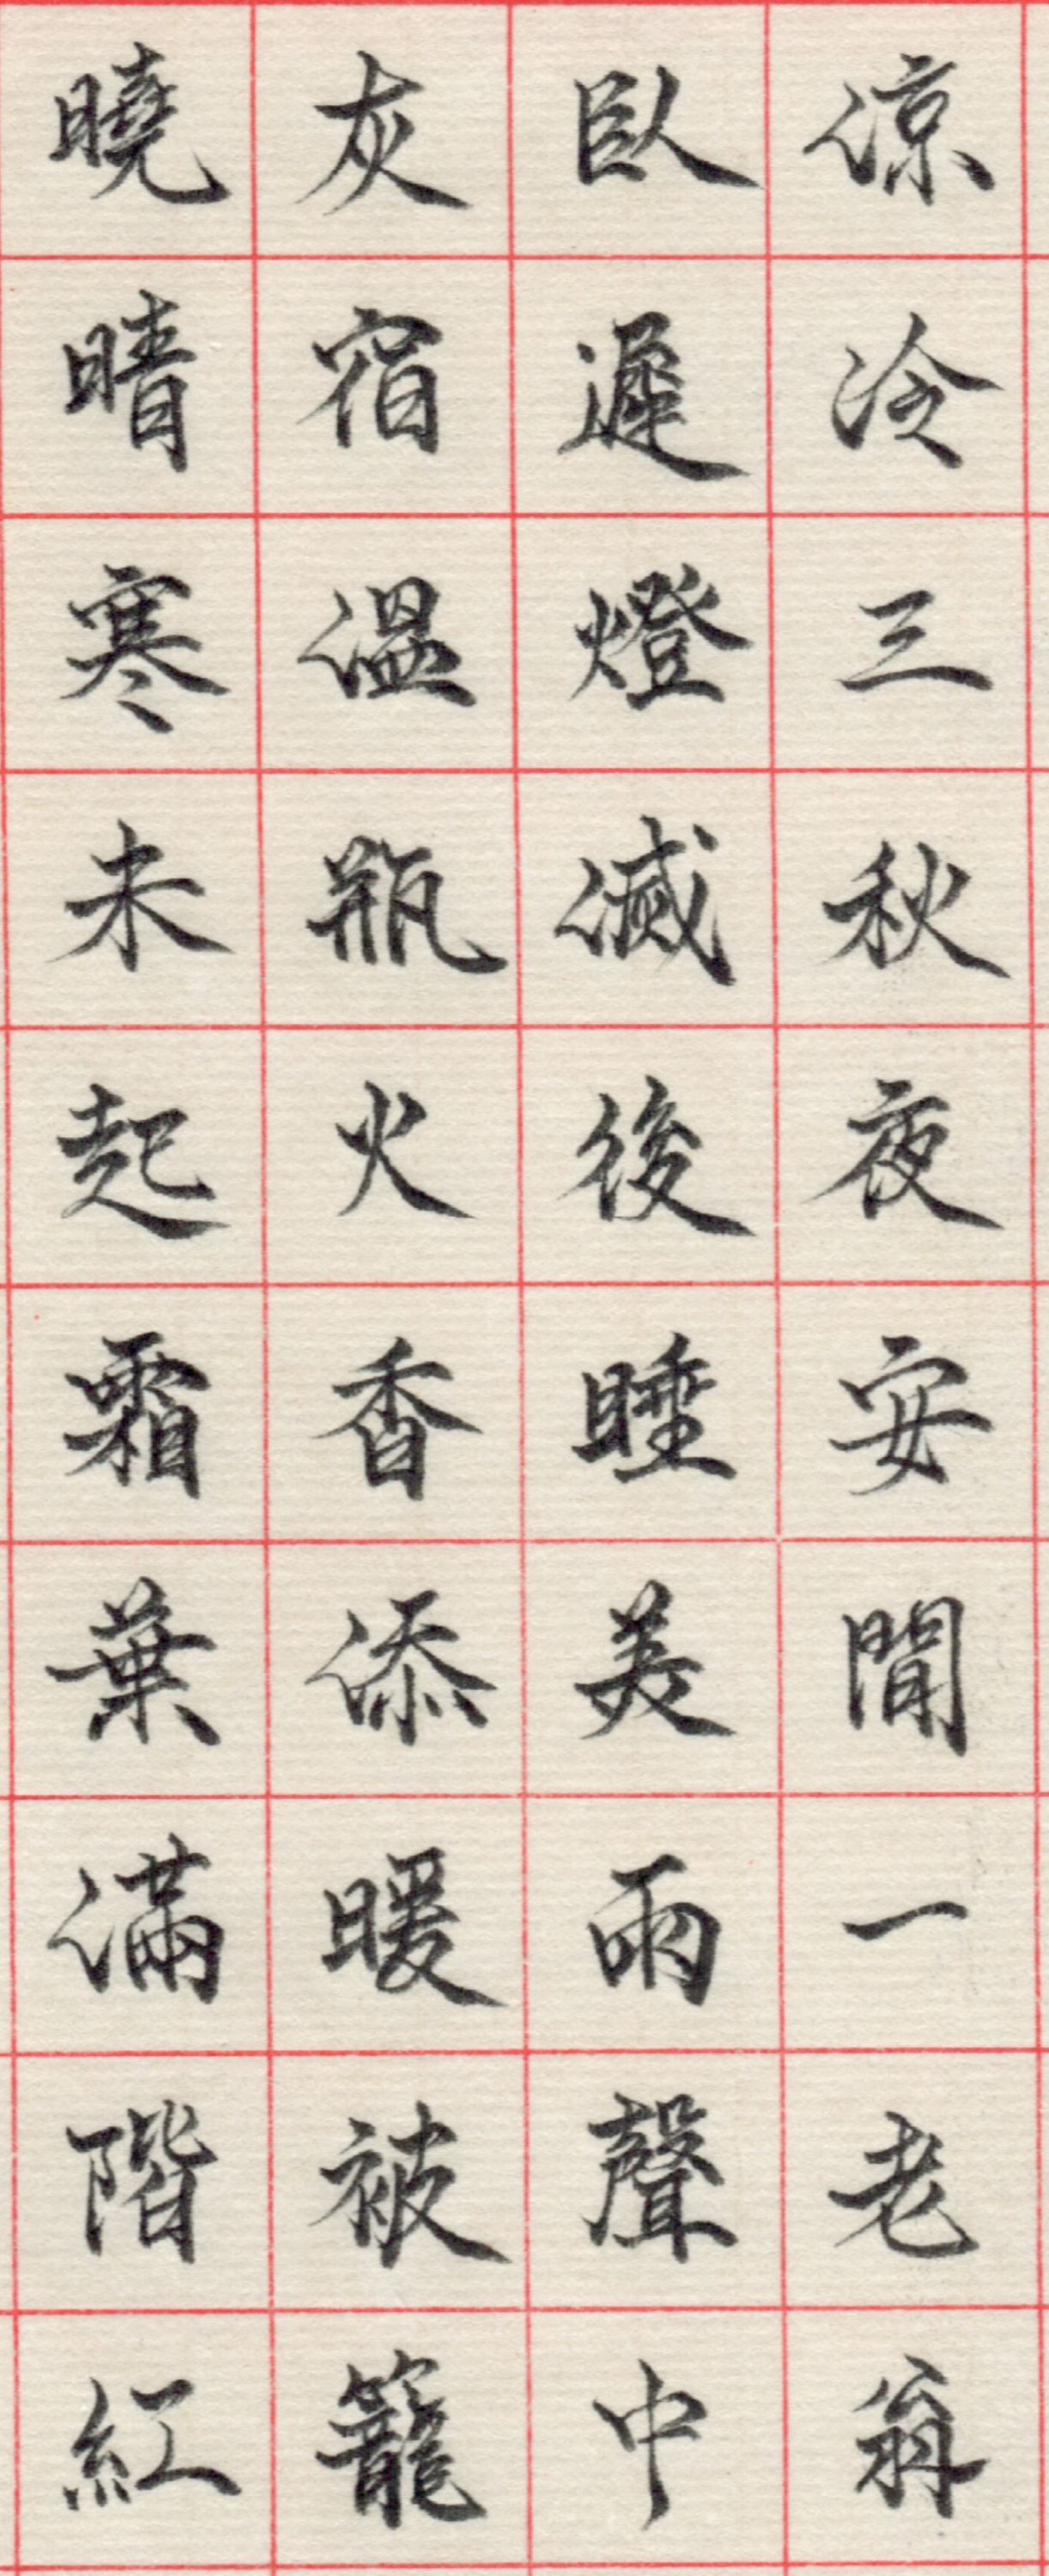 涼冷三秋夜安閒一老翁
臥遲燈滅後睡美雨聲中
灰宿溫瓶火香添暖被籠
曉晴寒未起霜葉滿階紅